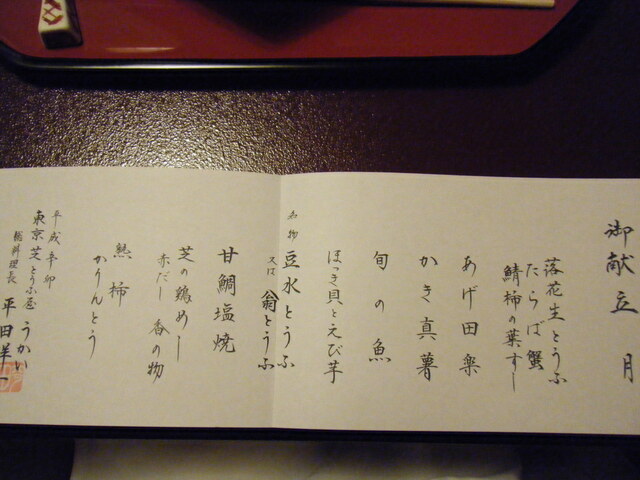 御献立 月
落花生とうふ
たらば蟹
鯖柿の葉すし
あげ田楽
かき真薯
旬の魚
ほっき貝とえび芋
名物 豆水とうふ
又は 翁とうふ
甘鯛塩焼
芝の鶏めし
赤だし 香の物
熟柿
かりんとう
平成辛卯
東京芝とうふ屋うかい
総料理長 平田洋一